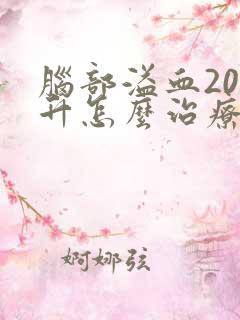 腦部溢血20
升怎麼治療
婀娜弦